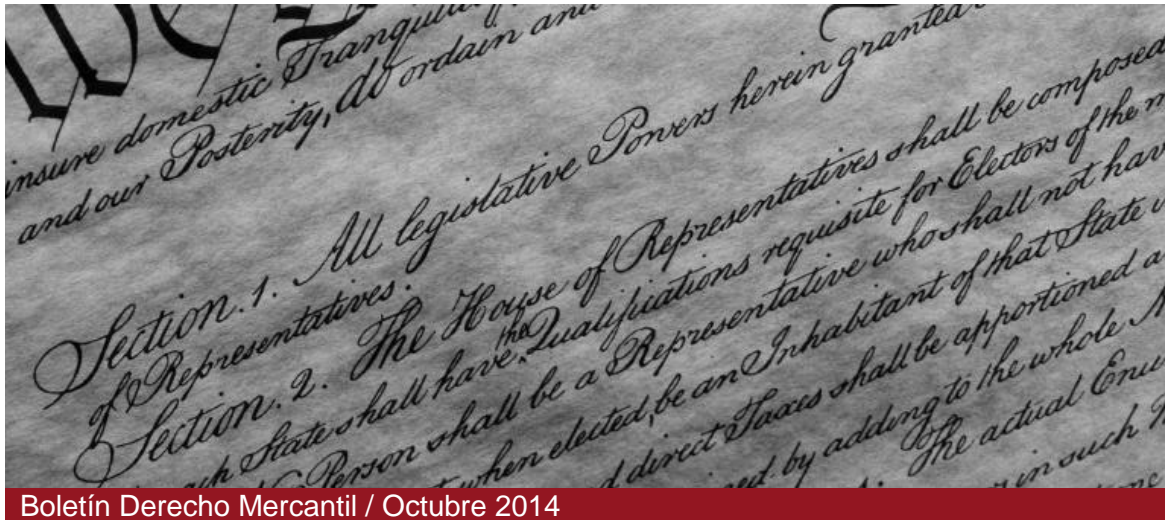 insure domestic Tranquility,
and our Posterity, do ordain and
Section. 1. All legislative Powers herein granted
of Representatives.
Section. 2. The House of Representatives shall be composed
ach State shall have the Qualifications requisite for Electors of the
Person shall be a Representative who shall not hav
when elected, be an Inhabitant of that State
d direct Taxes shall be apportioned a
ned by adding to the whole N
The actual Enu
in such
Boletín Derecho Mercantil / Octubre 2014